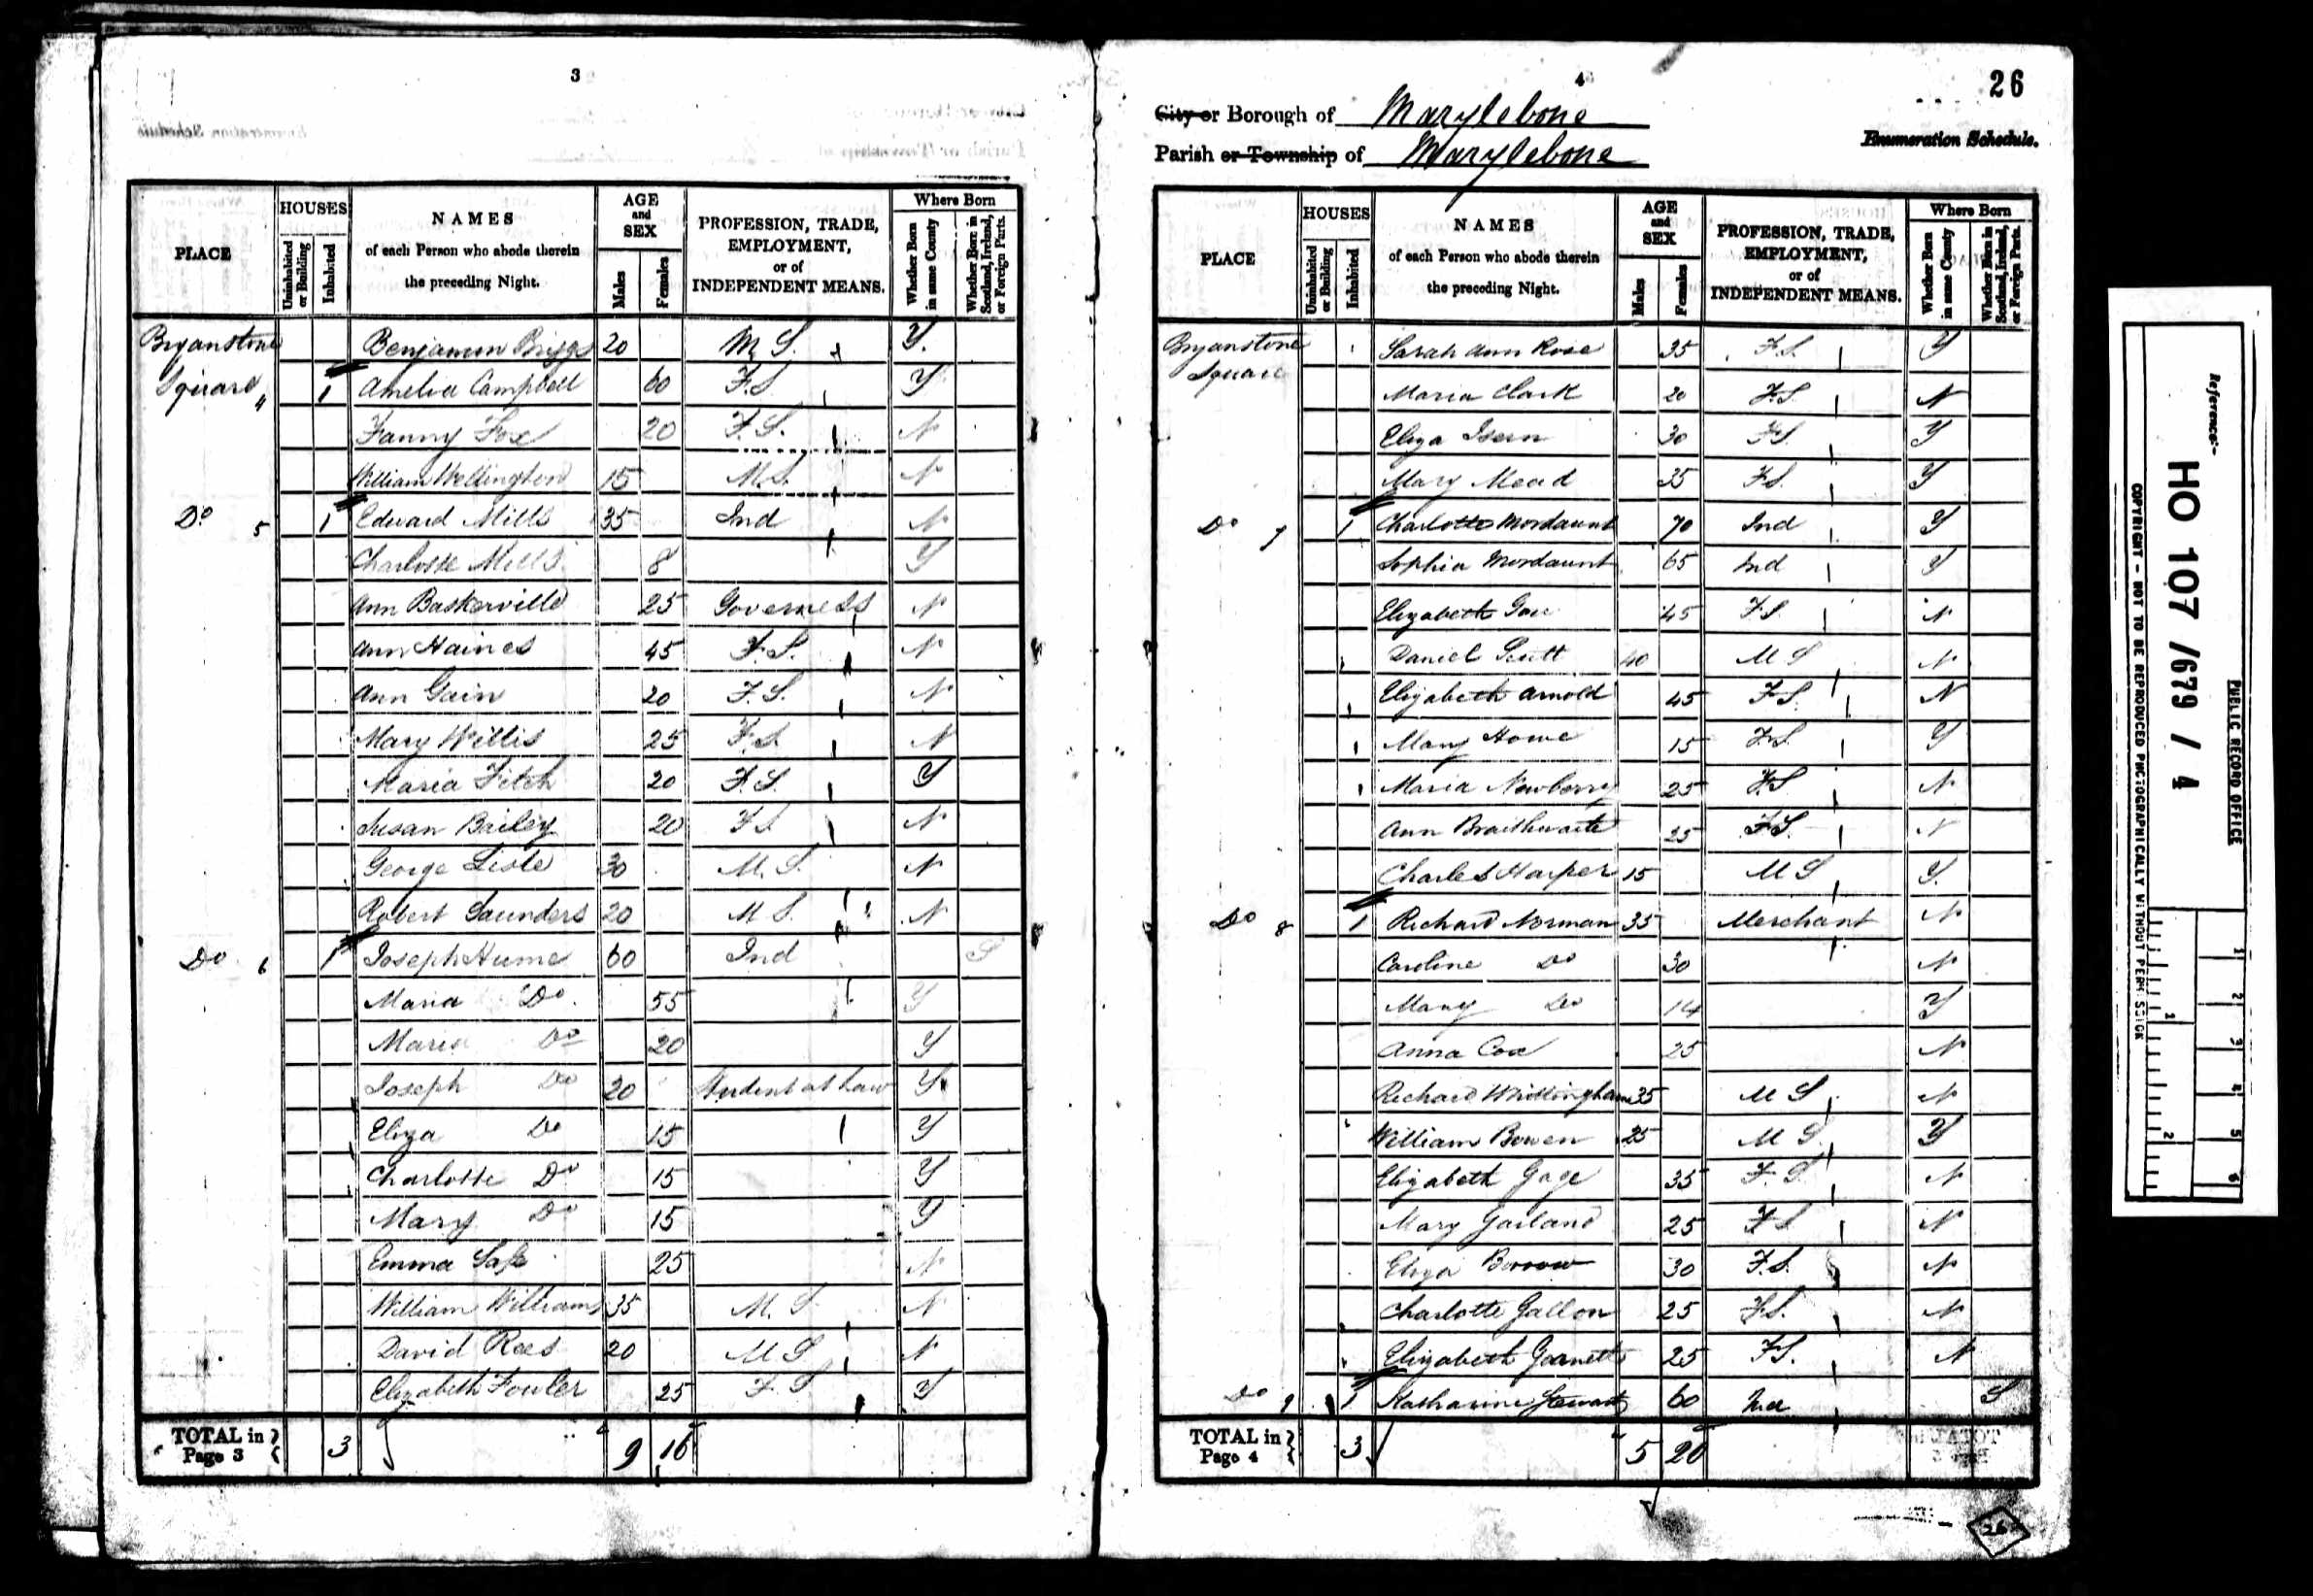 3
HOUSES
AGE and SEX
Where Born
PLACE
Uninhabited or Building
Inhabited
NAMES of each Person who abode therein the preceding Night.
Males
Females
PROFESSION, TRADE, EMPLOYMENT, or of INDEPENDENT MEANS.
Whether Born in same County
Whether Born in Scotland, Ireland, or Foreign Parts.
Bryanstone Benjamin Briggs 20 M S. Y.
Square " 1 Amelia Campbell 60 F.S Y
Fanny Fox 20 F.S. N
William Wellington 15 M.S. N
Do 5 1 Edward Mills 35 Ind N
Charlotte Mills 8 Y
Ann Baskerville 25 Governess N
Ann Haines 45 F.S. N
Ann Gain 20 F.S. N
Mary Willis 25 F.S. N
Maria Fitch 20 F.S. Y
Susan Bailey 20 F.S. N
George Lisle 30 M.S. N
Robert Saunders 20 M S. N
Do 6 1 Joseph Hume 60 Ind S
Maria Do. 55 Y
Maria Do 20 Y
Joseph Do 20 Student at Law Y
Eliza Do 15 Y
Charlotte Do 15 Y
Mary Do 15 Y
Emma 25 N
William Williams 35 M. S. N
David Rees 20 M S N
Elizabeth Fowler 25 F. S Y
TOTAL in Page 3 3 9 16
4
26
City or Borough of Marylebone
Parish or Township of Marylebone
Enumeration Schedule.
HOUSES
AGE and SEX
Where Born
PLACE
Uninhabited or Building
Inhabited
NAMES of each Person who abode therein the preceding Night.
Males
Females
PROFESSION, TRADE, EMPLOYMENT, or of INDEPENDENT MEANS.
Whether Born in same County
Whether Born in Scotland, Ireland, or Foreign Parts.
Bryanstone Sarah Ann Rose 35 F.S. Y
Square Maria Clark 20 F.S. N
Eliza Isern 30 F.S. Y
Mary Mead 35 F.S. Y
Do 7 1 Charlotte Mordaunt 70 Ind Y
Sophia Mordaunt 65 Ind Y
Elizabeth 45 F.S. N
Daniel Scutt 40 M S N
Elizabeth Arnold 45 F.S. N
Mary Howe 15 F.S. Y
Maria Newberry 25 F.S N
Ann Braithwaite 25 F.S. N
Charles Harper 15 M S Y.
Do 8 1 Richard Norman 35 Merchant N
Caroline Do 30 N
Mary Do 14 Y
Anna Cox 25 N
Richard Whittingham 35 M S N
William Bowen 25 M S Y
Elizabeth Gage 35 F. S. N
Mary Garland 25 F S N
Eliza Borrow 30 F.S. N
Charlotte Gallon 25 F.S. N
Elizabeth Garnett 25 F.S. N
Do 9 1 Katharine Stewart 60 Ind S
TOTAL in Page 4 3 5 20
26
Reference:-
HO 107 / 679 / 4
PUBLIC RECORD OFFICE
COPYRIGHT - NOT TO BE REPRODUCED PHOTOGRAPHICALLY WITHOUT PERMISSION
1 2
1 2 3 4 5 6